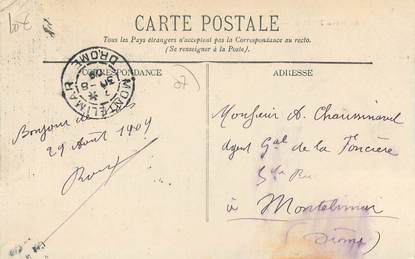 10€
CARTE POSTALE
Tous les Pays étrangers n'acceptent pas la Correspondance au recto.
(Se renseigner à la Poste).
CORRESPONDANCE
ADRESSE
MONTÉLIMAR
DROME
Bonjour de
29 Août 1909
Monsieur A. Chaussinand
Agent Gal de la Foncière
à Montelimar
(Drôme)